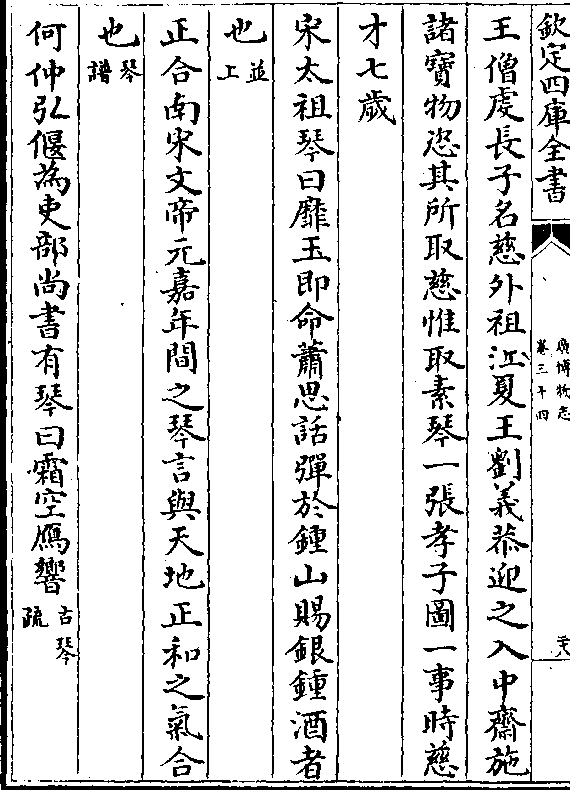 欽定四庫全書
廣博物志
卷三十四
六
王僧虔長子名慈外祖江夏王劉義恭迎之入中齋施
諸寶物恣其所取慈惟取素琴一張孝子圖一事時慈
才七歲
宋太祖琴曰靡玉即命蕭思話彈於鍾山賜銀鍾酒者
也並上
正合南宋文帝元嘉年間之琴言與天地正和之氣合
也琴譜
何仲弘偃為吏部尚書有琴曰霜空鴈響古琴疏